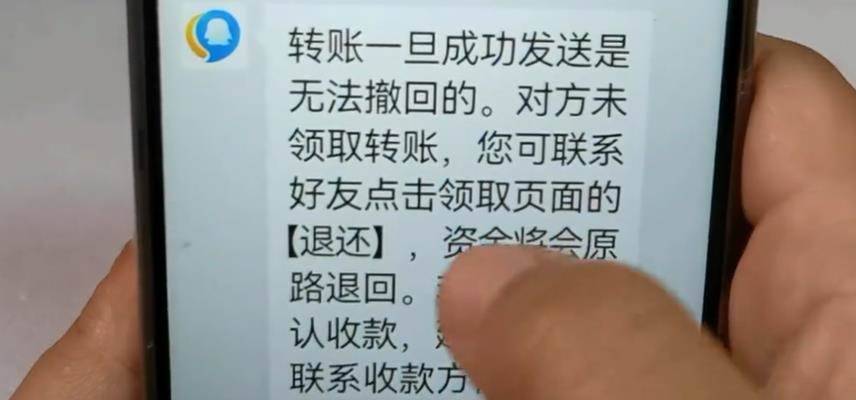 转账一旦成功发送是
无法撤回的。对方未
领取转账，您可联系
好友点击领取页面的
【退还】，资金将会原
路退回。
认收款，
联系收款方